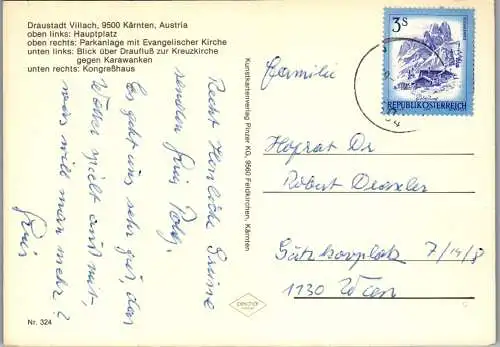 Draustadt Villach, 9500 Kärnten, Austria
oben links: Hauptplatz
oben rechts: Parkanlage mit Evangelischer Kirche
unten links: Blick über Draufluß zur Kreuzkirche
gegen Karawanken
unten rechts: Kongreßhaus
Recht Herzliche Grüße
senden
Es geht uns sehr gut, das
Wetter spielt auch mit,
was will man mehr?
Nr. 324
Kunstkartenverlag Pinzer KG, 9560 Feldkirchen, Kärnten
3 S
REPUBLIK ÖSTERREICH
Familie
Hofrat Dr
Robert
7/14/8
1130 Wien